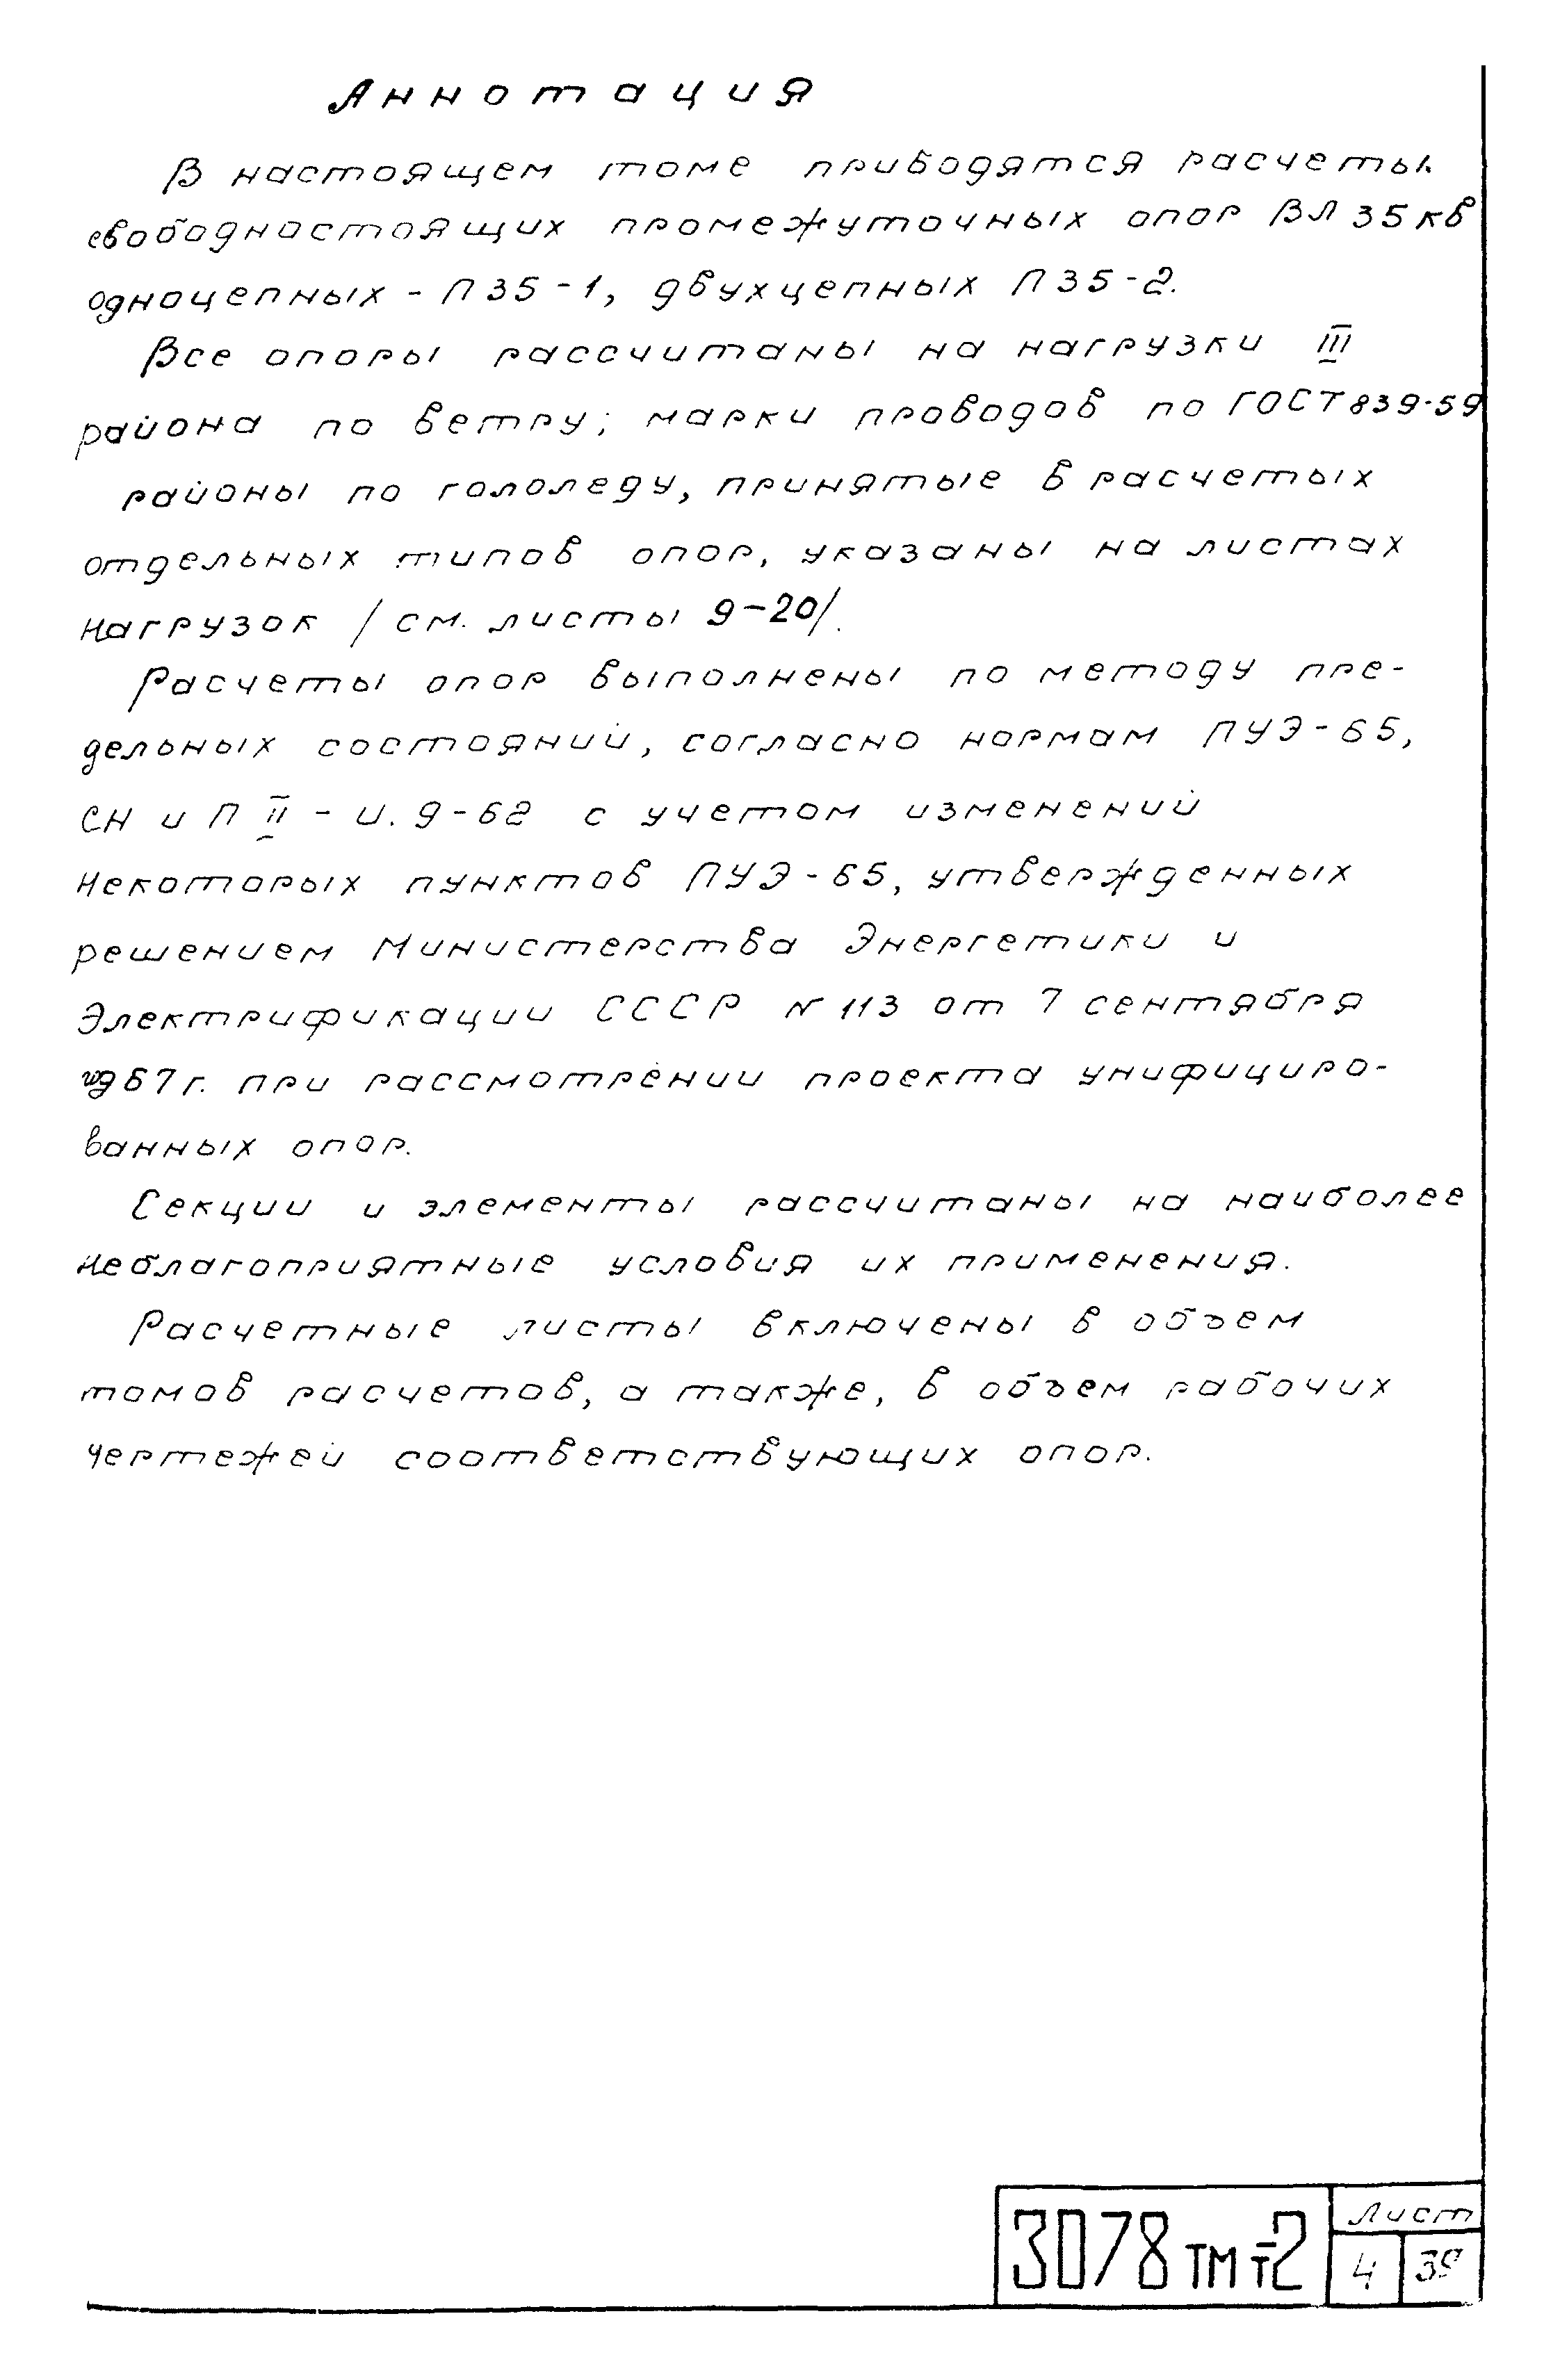 Аннотация
В настоящем томе приводятся расчеты
свободностоящих промежуточных опор ВЛ 35 кв
одноцепных - П 35 - 1, двухцепных П 35 - 2.
Все опоры рассчитаны на нагрузки III
района по ветру; марки проводов по ГОСТ 839-59
районы по гололеду, принятые в расчетых
отдельных типов опор, указаны на листах
нагрузок / см. листы 9-20/.
Расчеты опор выполнены по методу пре-
дельных состояний, согласно нормам ПУЭ - 65,
СН и П II - И. 9 - 62 с учетом изменений
некоторых пунктов ПУЭ - 65, утвержденных
решением Министерства Энергетики и
Электрификации СССР N 113 от 7 сентября
1967 г. при рассмотрении проекта унифициро-
ванных опор.
Секции и элементы рассчитаны на наиболее
неблагоприятные условия их применения.
Расчетные листы включены в объем
томов расчетов, а также, в объем рабочих
чертежей соответствующих опор.
3078 ТМ Т-2
Лист
4 39